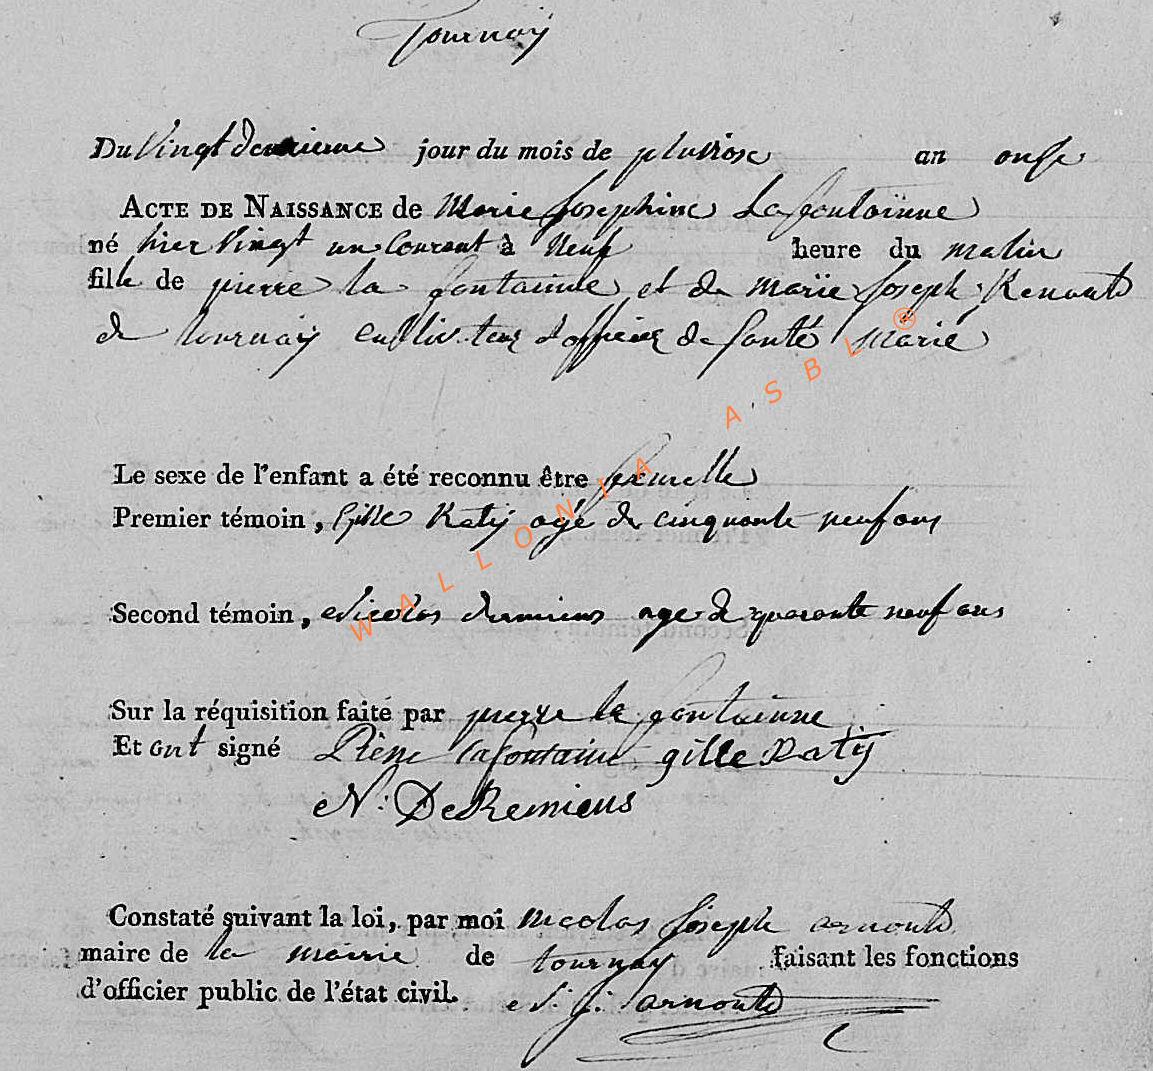 Tournay
Du Vingt deuxieme jour du mois de pluviose an onse
ACTE DE NAISSANCE de Marie Josephine Lafontainne
né hier Vingt un Courant à neuf heure du matin
fille de pierre la fontainne et de marïe Joseph Renauld
de tournay cultivateur et officier de santé marié
Le sexe de l'enfant a été reconnu être femelle
Premier témoin, Gille Katij agé de cinquante neuf ans
Second témoin, Nicolas agé de quarante neuf ans
Sur la réquisition faite par pierre la fontainne
Et ont signé Pierre lafontaine gille Katij
N: DeRemiens
Constaté suivant la loi, par moi nicolas Joseph arnould
maire de la mairie de tournay faisant les fonctions
d'officier public de l'état civil. N. J. arnould
WALLONIA ASBL ®